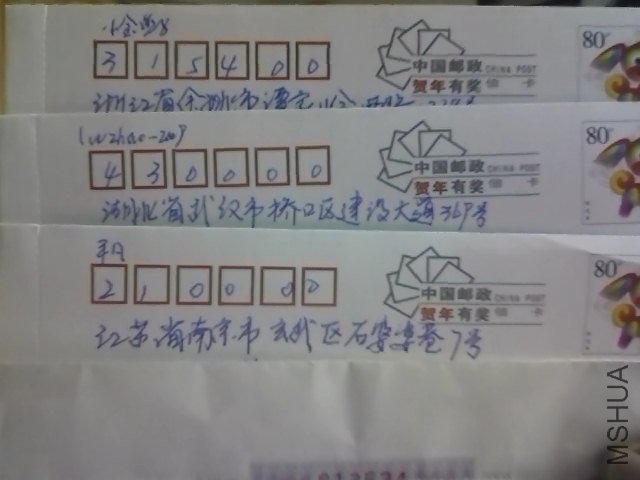 315400
80
中国邮政 CHINA POST
贺年有奖 信 卡
浙江省余姚市
luzhao-2009
430000
80
中国邮政 CHINA POST
贺年有奖 信 卡
湖北省武汉市桥口区建设大道369号
平凡
210000
80
中国邮政 CHINA POST
贺年有奖 信 卡
江苏省南京市玄武区石婆婆巷7号
MSHUA